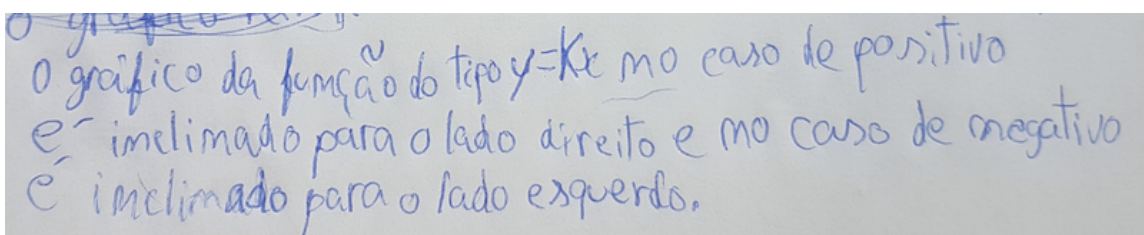 O gráfico da função do tipo y=Kx no caso de positivo
é inclinado para o lado direito e no caso de negativo
é inclinado para o lado esquerdo.